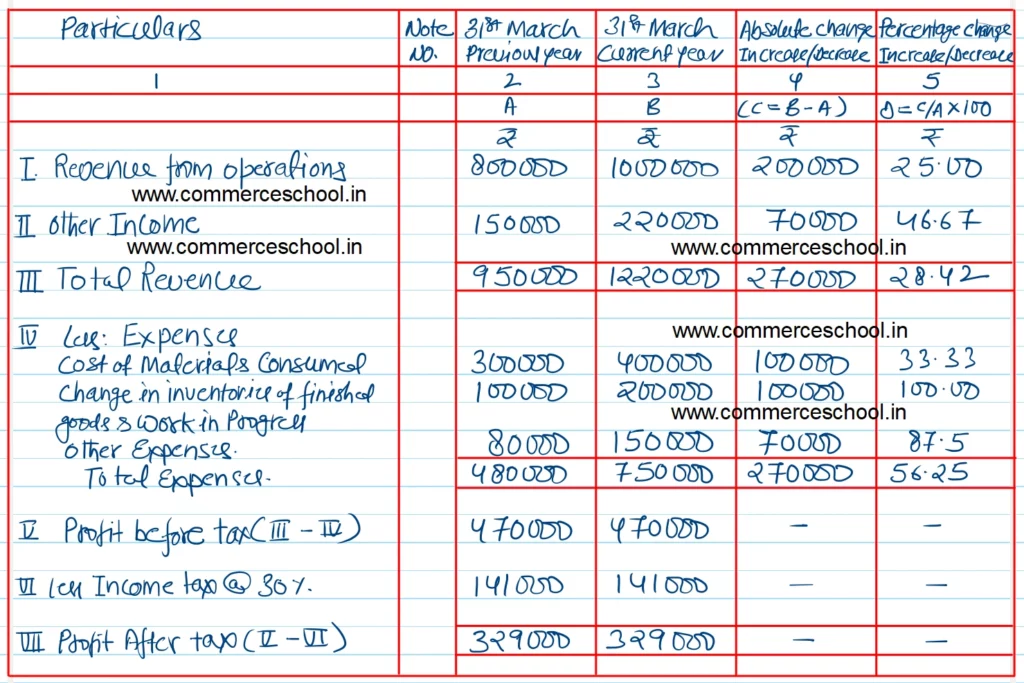 Particulars Note No. 31st March Previous year 31st March Current year Absolute change Increase/Decrease Percentage change Increase/Decrease
1 2 3 4 5
A B (C = B - A) D = C/A × 100
₹ ₹ ₹ ₹
I. Revenue from operations 800000 1000000 200000 25.00
www.commerceschool.in
II Other Income 150000 220000 70000 46.67
www.commerceschool.in www.commerceschool.in
III Total Revenue 950000 1220000 270000 28.42
IV Less: Expenses www.commerceschool.in
Cost of Materials Consumed 300000 400000 100000 33.33
Change in inventories of finished 100000 200000 100000 100.00
goods & Work in Progress www.commerceschool.in
Other Expenses. 80000 150000 70000 87.5
Total Expenses. 480000 750000 270000 56.25
V Profit before tax (III - IV) 470000 470000 — —
VI Less Income tax @ 30%. 141000 141000 — —
VII Profit After tax (V - VI) 329000 329000 — —